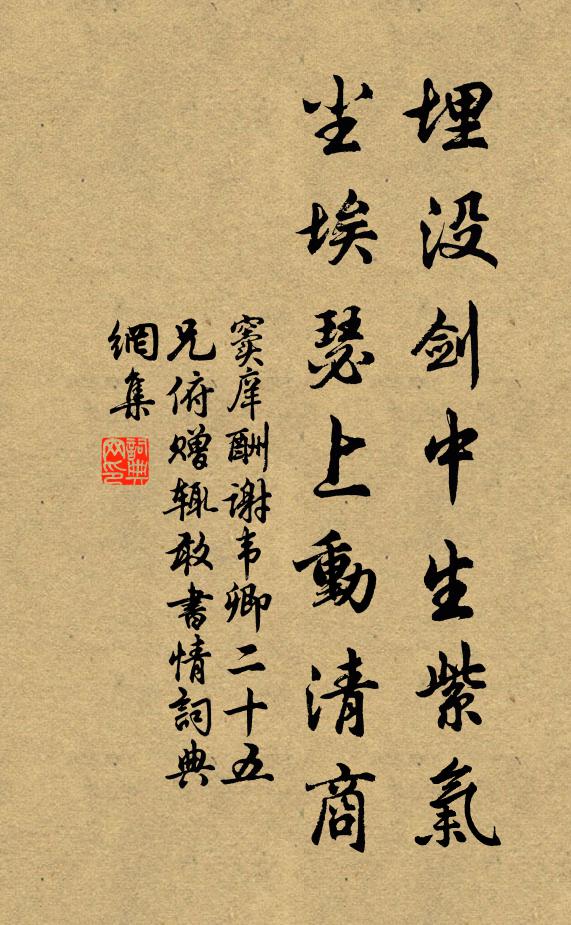 埋没剑中生紫氣
尘埃瑟上動清商
窦庠酬谢韦卿二十五
兄俯赠辄敢書情詞典
網集
詞典
网印